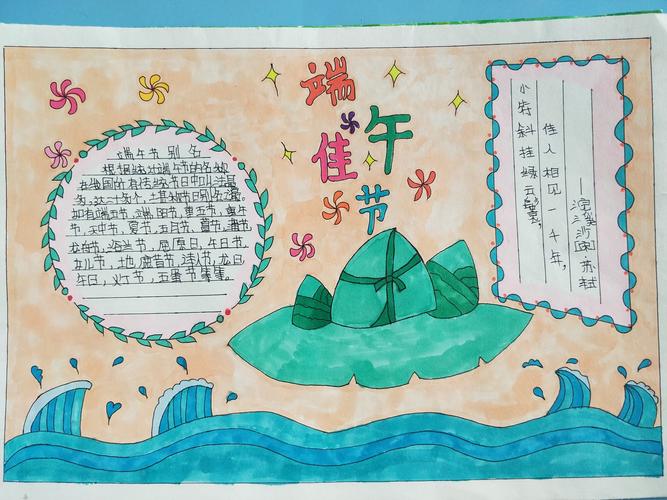 端午佳节
端午节别名
根据统计端午节的名称
在我国所有传统节日中叫法最
多,达二十多个,堪称节日别名之最。
如有端五节,端阳节,重五节,重午
节,天中节,夏节,五月节,菖节,蒲节,
龙舟节,浴兰节,屈原日,午日节,
女儿节,地,腊节,诗人节,龙日
午日,灯节,五蛋节等等。
小符斜挂绿云鬟。
佳人相见一千年,
——浣溪沙 苏轼